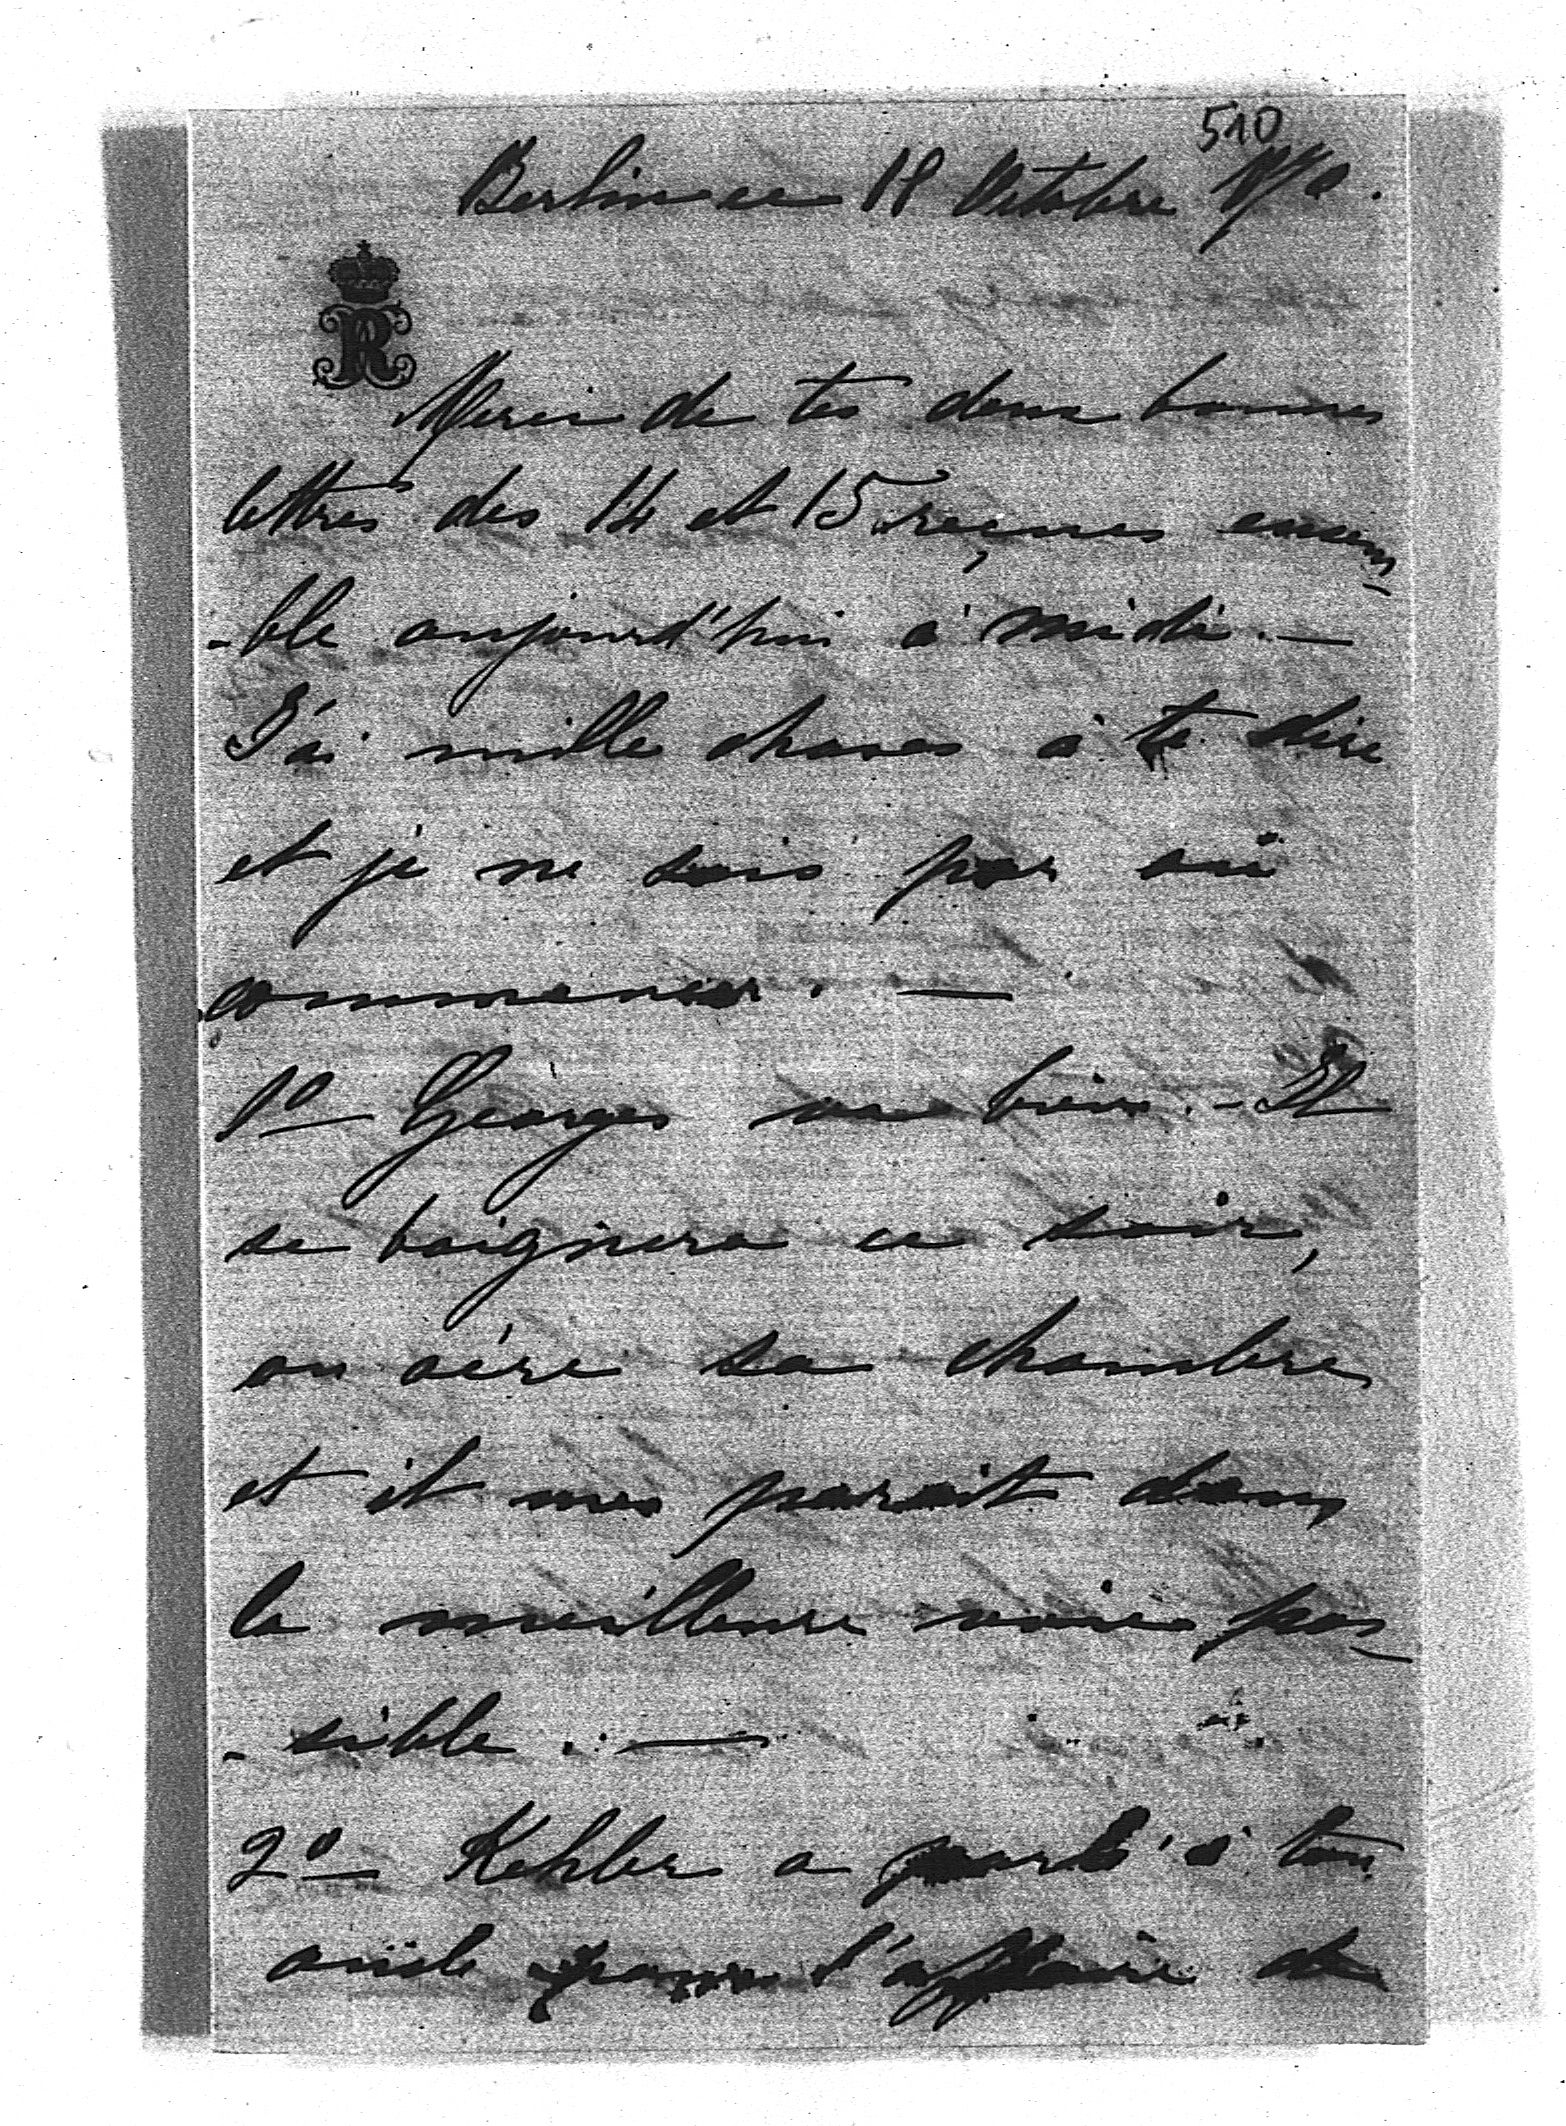 510
Berlin ce 18 Octobre
R
Merci de tes deux bonnes
lettres des 14 et 15 reçues ensem-
-ble aujourd'hui à midi. —
J'ai mille choses à te dire
et je ne sais par où
commencer. —
1º Georges va bien. - Il
se baignera ce soir,
on aère sa chambre
et il me parait dans
la meilleure voie pos-
-sible. —
2º Kehler a parlé à ton
oncle pour l'affaire de